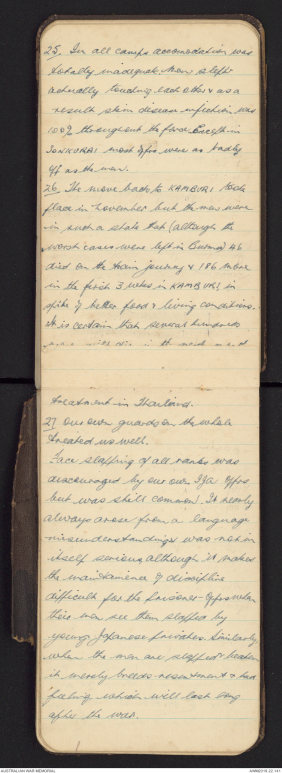 25. In all camps accomodation was
totally inadequate. Men slept
actually touching each other & as a
result skin disease infection was
100% throughout the force. Except in
SONKURAI most offrs were as badly
off as the men.
26. The move back to KAMBURI took
place in November but the men were
in such a state that (although the
worst cases were left in Burma) 46
died on the train journey & 186 more
in the first 3 weeks in KAMBURI in
spite of better food & living conditions.
It is certain that several hundreds
more will die in the next
treatment in Thailand.
27 Our own guards on the whole
treated us well.
Face slapping of all ranks was
discouraged by our own IJA offrs
but was still common. It nearly
always arose from a language
misunderstanding & was not in
itself serious although it makes
the maintainence of discipline
difficult for the prisoner-offrs when
their men see them slapped by
young Japanese privates. Similarly
when the men are slapped & beaten
it merely breeds resentment & bad
feeling which will last long
after the war.
AUSTRALIAN WAR MEMORIAL